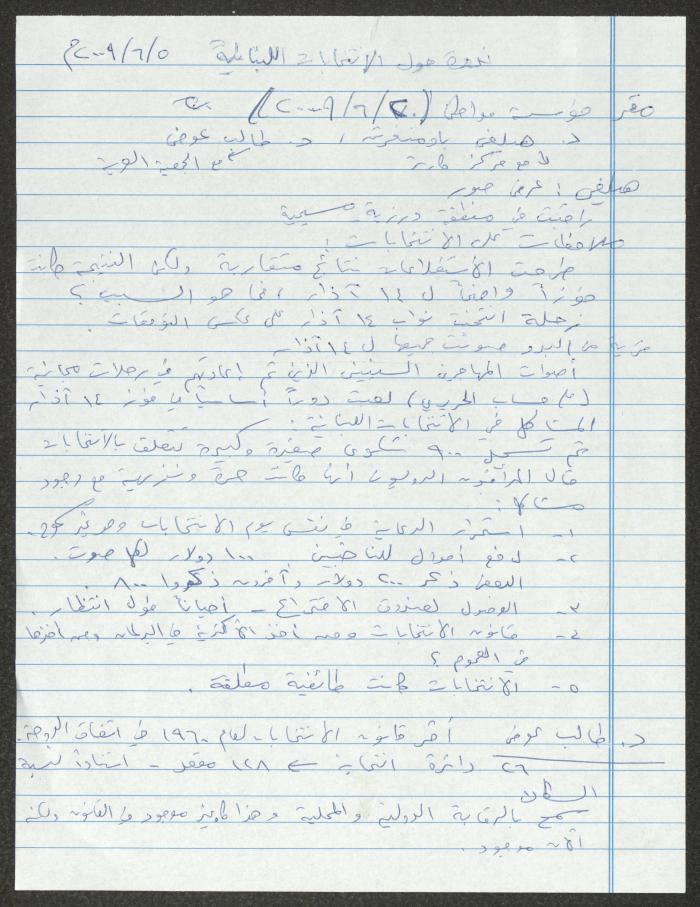 ندوة حول الانتخابات اللبنانية ٢٠٠٩/٦/٥م
مقر مؤسسة مواطن (٢٠٠٩/٦/٢٠)
د. هيلغى باومغرتن، د. طالب عوض
مع مركز كارتر مع الجمعية
هيلغى: عرض صور
راقبت في منطقة درزية مسيحية
ملاحظات على الانتخابات:
طرحت الاستطلاعات نتائج متقاربة ولكن النتيجة كانت
فوزاً واضحاً ل ١٤ آذار، فما هو السبب؟
زحلة انتخبت نواب ١٤ آذار على عكس التوقعات.
قرية من البدو صوتت جميعها ل ١٤ آذار
أصوات المهاجرين السنيين الذين تم إعادتهم في رحلات مجانية
(على حساب الحريري) لعبت دوراً أساسياً في فوز ١٤ آذار
المشاكل في الانتخابات اللبنانية:
تم تسجيل ٩٠٠ شكوى صغيرة وكبيرة تتعلق بالانتخابات
قال المراقبون الدوليون أنها كانت حرة ونزيهة مع وجود
مشاكل:
١- استمرار الدعاية في نفس يوم الانتخابات وهو غير مسموح.
٢- دفع أموال للناخبين ١٠٠ دولار لكل صوت.
البعض ذكر ٢٠٠ دولار وآخرون ذكروا ٨٠٠.
٣- الوصول لصندوق الاقتراع - أحياناً طول انتظار.
٤- قانون الانتخابات ومن أخذ الأكثرية في البرلمان ومن أخذها
في العموم؟
٥- الانتخابات كانت طائفية مطلقة.
د. طالب عوض أقر قانون الانتخابات لعام ١٩٦٠ في اتفاق الدوحة.
٢٦ دائرة انتخابية ١٢٨ مقعد - استناداً لنسبة
السكان
سمح بالرقابة الدولية والمحلية وهذا غير موجود في القانون ولكنه
الآن موجود.